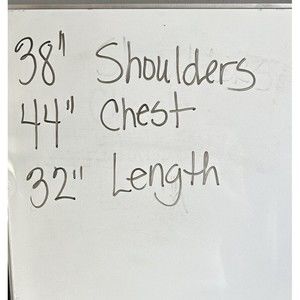 38" Shoulders
44" Chest
32" Length